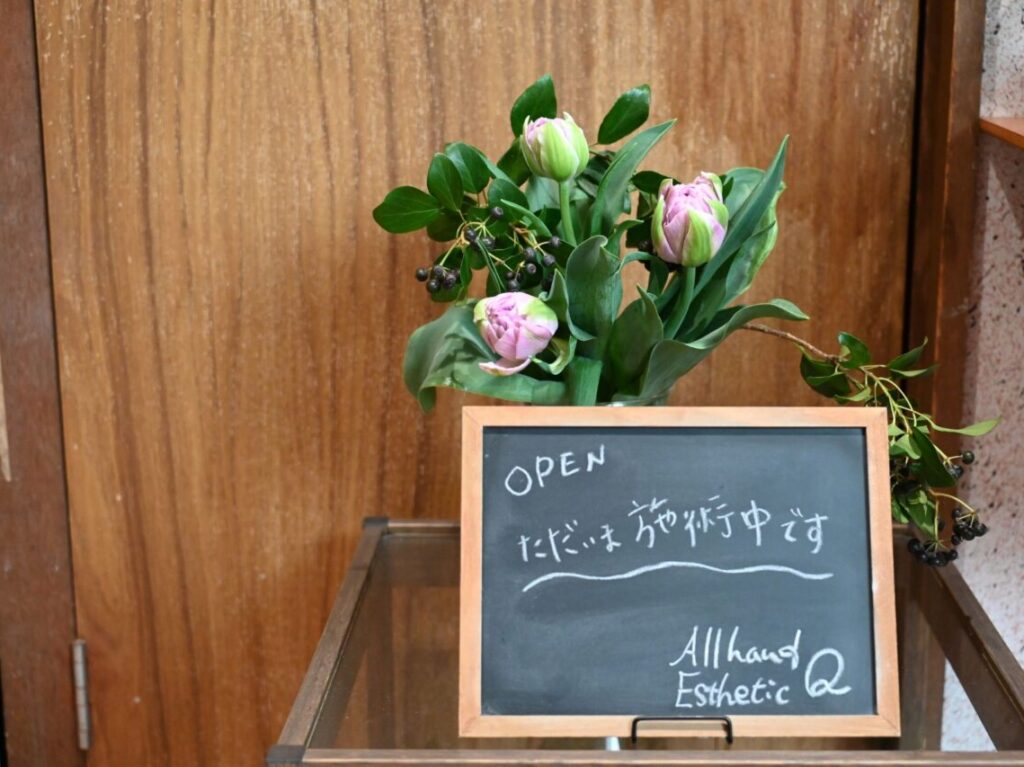 OPEN
ただいま施術中です
Allhand
Esthetic Q